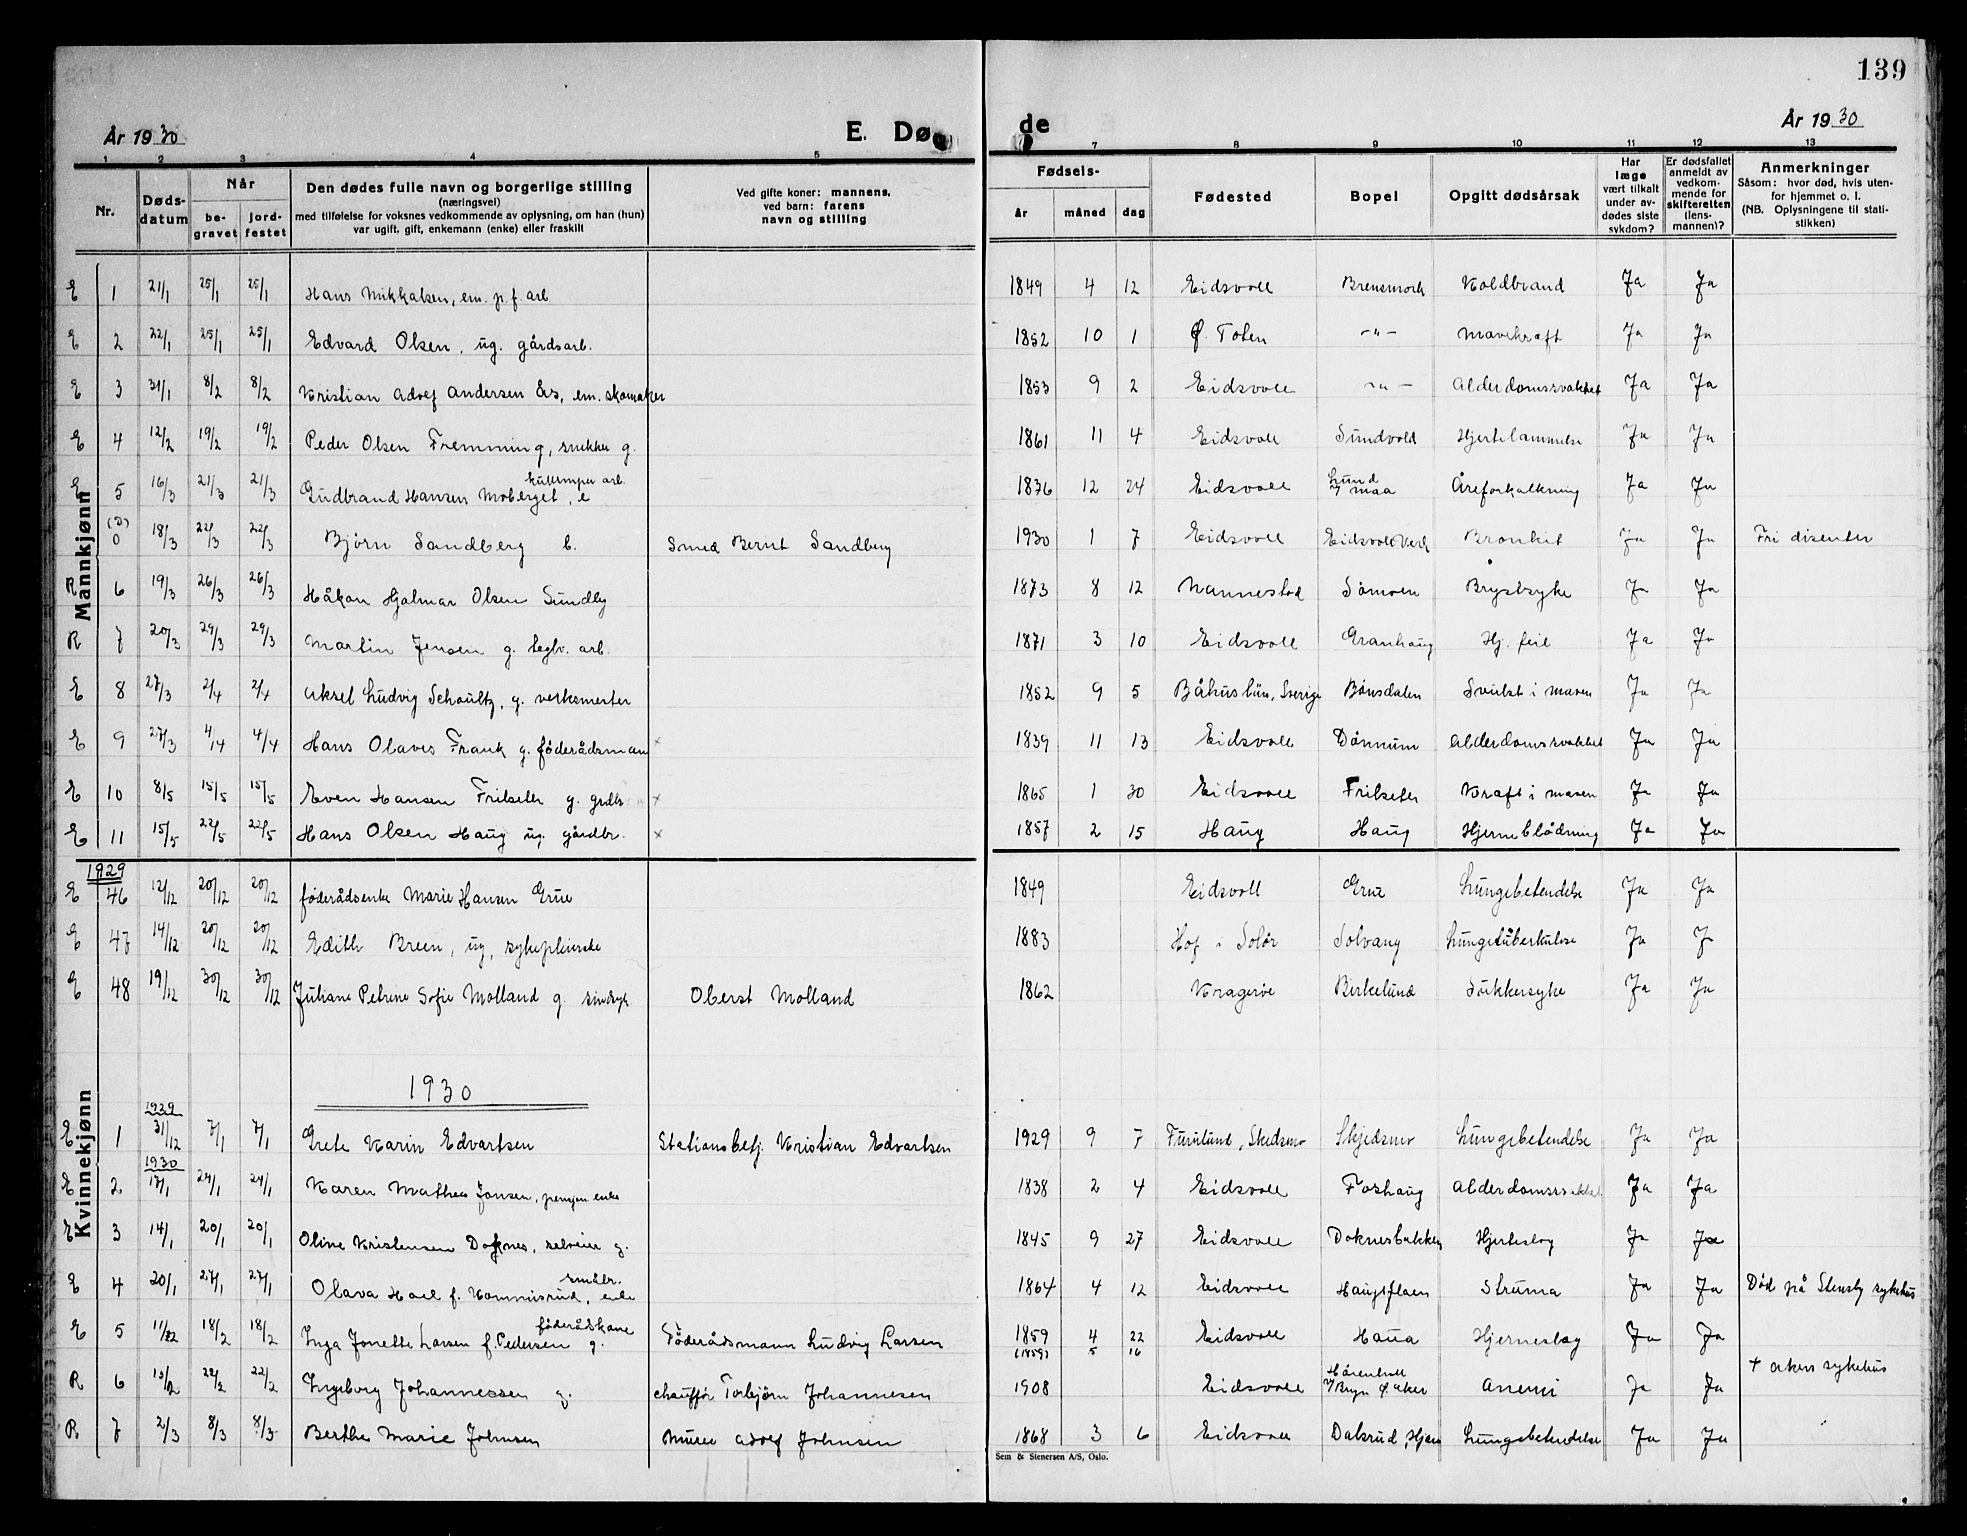 139
År 1930
E. Dø
de
År 1930
1 2 3 4 5 7 8 9 10 11 12 13
Nr.
Dødsdatum
Når
begravet
jordfestet
Den dødes fulle navn og borgerlige stilling
(næringsvei)
med tilføielse for voksnes vedkommende av oplysning, om han (hun)
var ugift, gift, enkemann (enke) eller fraskilt
Ved gifte koner: mannens,
ved barn: farens
navn og stilling
Fødsels-
år måned dag
Fødested
Bopel
Opgitt dødsårsak
Har læge vært tilkalt under avdødes siste sykdom?
Er dødsfallet anmeldt av vedkommende for skifteretten (lensmannen)?
Anmerkninger
Såsom: hvor død, hvis utenfor hjemmet o. l.
(NB. Oplysningene til statistikken)
Mannkjønn
E 1 21/1 25/1 25/1 Hans Mikkalsen, em. p. f. arb. 1849 4 12 Eidsvoll Koldbrand Ja Ja
E 2 22/1 25/1 25/1 Edvard Olsen, ug. gårdsarb. 1852 10 1 Ø. Toten -"- Mavekræft Ja Ja
E 3 31/1 8/2 8/2 Kristian Adolf Andersen Ås, em. skomaker 1853 9 2 Eidsvoll -"- Alderdomssvakhet Ja Ja
E 4 12/2 19/2 19/2 Peder Olsen Fremming, snekker g. 1861 11 4 Eidsvoll Sundvold Hjertelammelse Ja Ja
E 5 16/3 21/3 21/3 Gudbrand Hansen Moberget, e 1876 12 24 Eidsvoll Lund Åreforkalkning Ja Ja
(D) 0 18/3 22/3 22/3 Bjørn Sandberg b. Smed Bernt Sandberg 1930 1 7 Eidsvoll Eidsvoll Verk Bronkit Ja Ja Fri disenter
R 6 19/3 26/3 26/3 Håkon Hjalmar Olsen Sundby 1873 8 12 Nannestad Sømoen Brystsyke Ja Ja
R 7 20/3 29/3 29/3 Martin Jensen g. teglv. arb. 1871 3 10 Eidsvoll Granhaug Hj. feil Ja Ja
E 8 27/3 2/4 2/4 Aksel Ludvig Schoultz, g. verksmester 1852 9 5 Båhuslün, Sverige Bønsdalen Svulst i maven Ja Ja
E 9 27/3 4/4 4/4 Hans Olaves Frank g. føderådsman × 1839 11 13 Eidsvoll Dønnum Alderdomssvakhet Ja Ja
E 10 8/5 15/5 15/5 Even Hansen Frilseter g. grdbr. × 1865 1 30 Eidsvoll Frilseter Kræft i maven Ja Ja
E 11 15/5 22/5 22/5 Hans Olsen Haug ug. gårdbr. × 1857 2 15 Haug Haug Hjerneblødning Ja Ja
Kvinnekjønn
1929
E 46 12/12 20/12 20/12 føderådsenke Marie Hansen Grue 1849 Eidsvoll Grue Lungebetendelse Ja Ja
E 47 14/12 20/12 20/12 Edith Breen, ug, sykepleierske 1883 Hof i Solør Solvang Lungetuberkulose Ja J
E 48 19/12 30/12 30/12 Juliane Petrine Sofie Molland g. sindsyk Oberst Molland 1862 Kragerøe Birkelund Sukkersyke Ja Ja
1930
1929
E 1 31/12 7/1 7/1 Grete Karin Edvartsen Stationsbetj. Kristian Edvartsen 1929 9 7 Furulund, Skedsmo Skjedsmo Lungebetendelse Ja Ja
1930
E 2 17/1 24/1 24/1 Karen Mathea Jonsen, enke 1838 2 4 Eidsvoll Foshaug Alderdomssvakhet Ja Ja
E 3 14/1 20/1 20/1 Oline Kristensen Doknes, selveier g. 1845 9 27 Eidsvoll Doknesbakken Hjerteslag Ja Ja
småbr.
E 4 20/1 27/1 27/1 Olava Hoel f. Kommisrud, enke 1864 4 12 Eidsvoll Haugsflaen Struma Ja Ja Død på Stensby sykehus
føderådskone
E 5 11/2 18/2 18/2 Inga Jonette Larsen f. Pedersen g. Føderådsmann Ludvig Larsen 1859 4 22 Eidsvoll Haua Hjerneslag Ja Ja
(1859) 5 16
R 6 22/2 22/2 Ingeborg Johannessen g. chauffør Torbjørn Johannesen 1908 Eidsvoll Bryn Ø. Aker Anemi Ja Ja + Akers sykehus
R 7 2/3 8/3 8/3 Berthe Marie Johnsen Murer Adolf Johnsen 1868 3 6 Eidsvoll Dalsrud, Lungebetendelse Ja Ja
Sem & Stenersen A/S, Oslo.